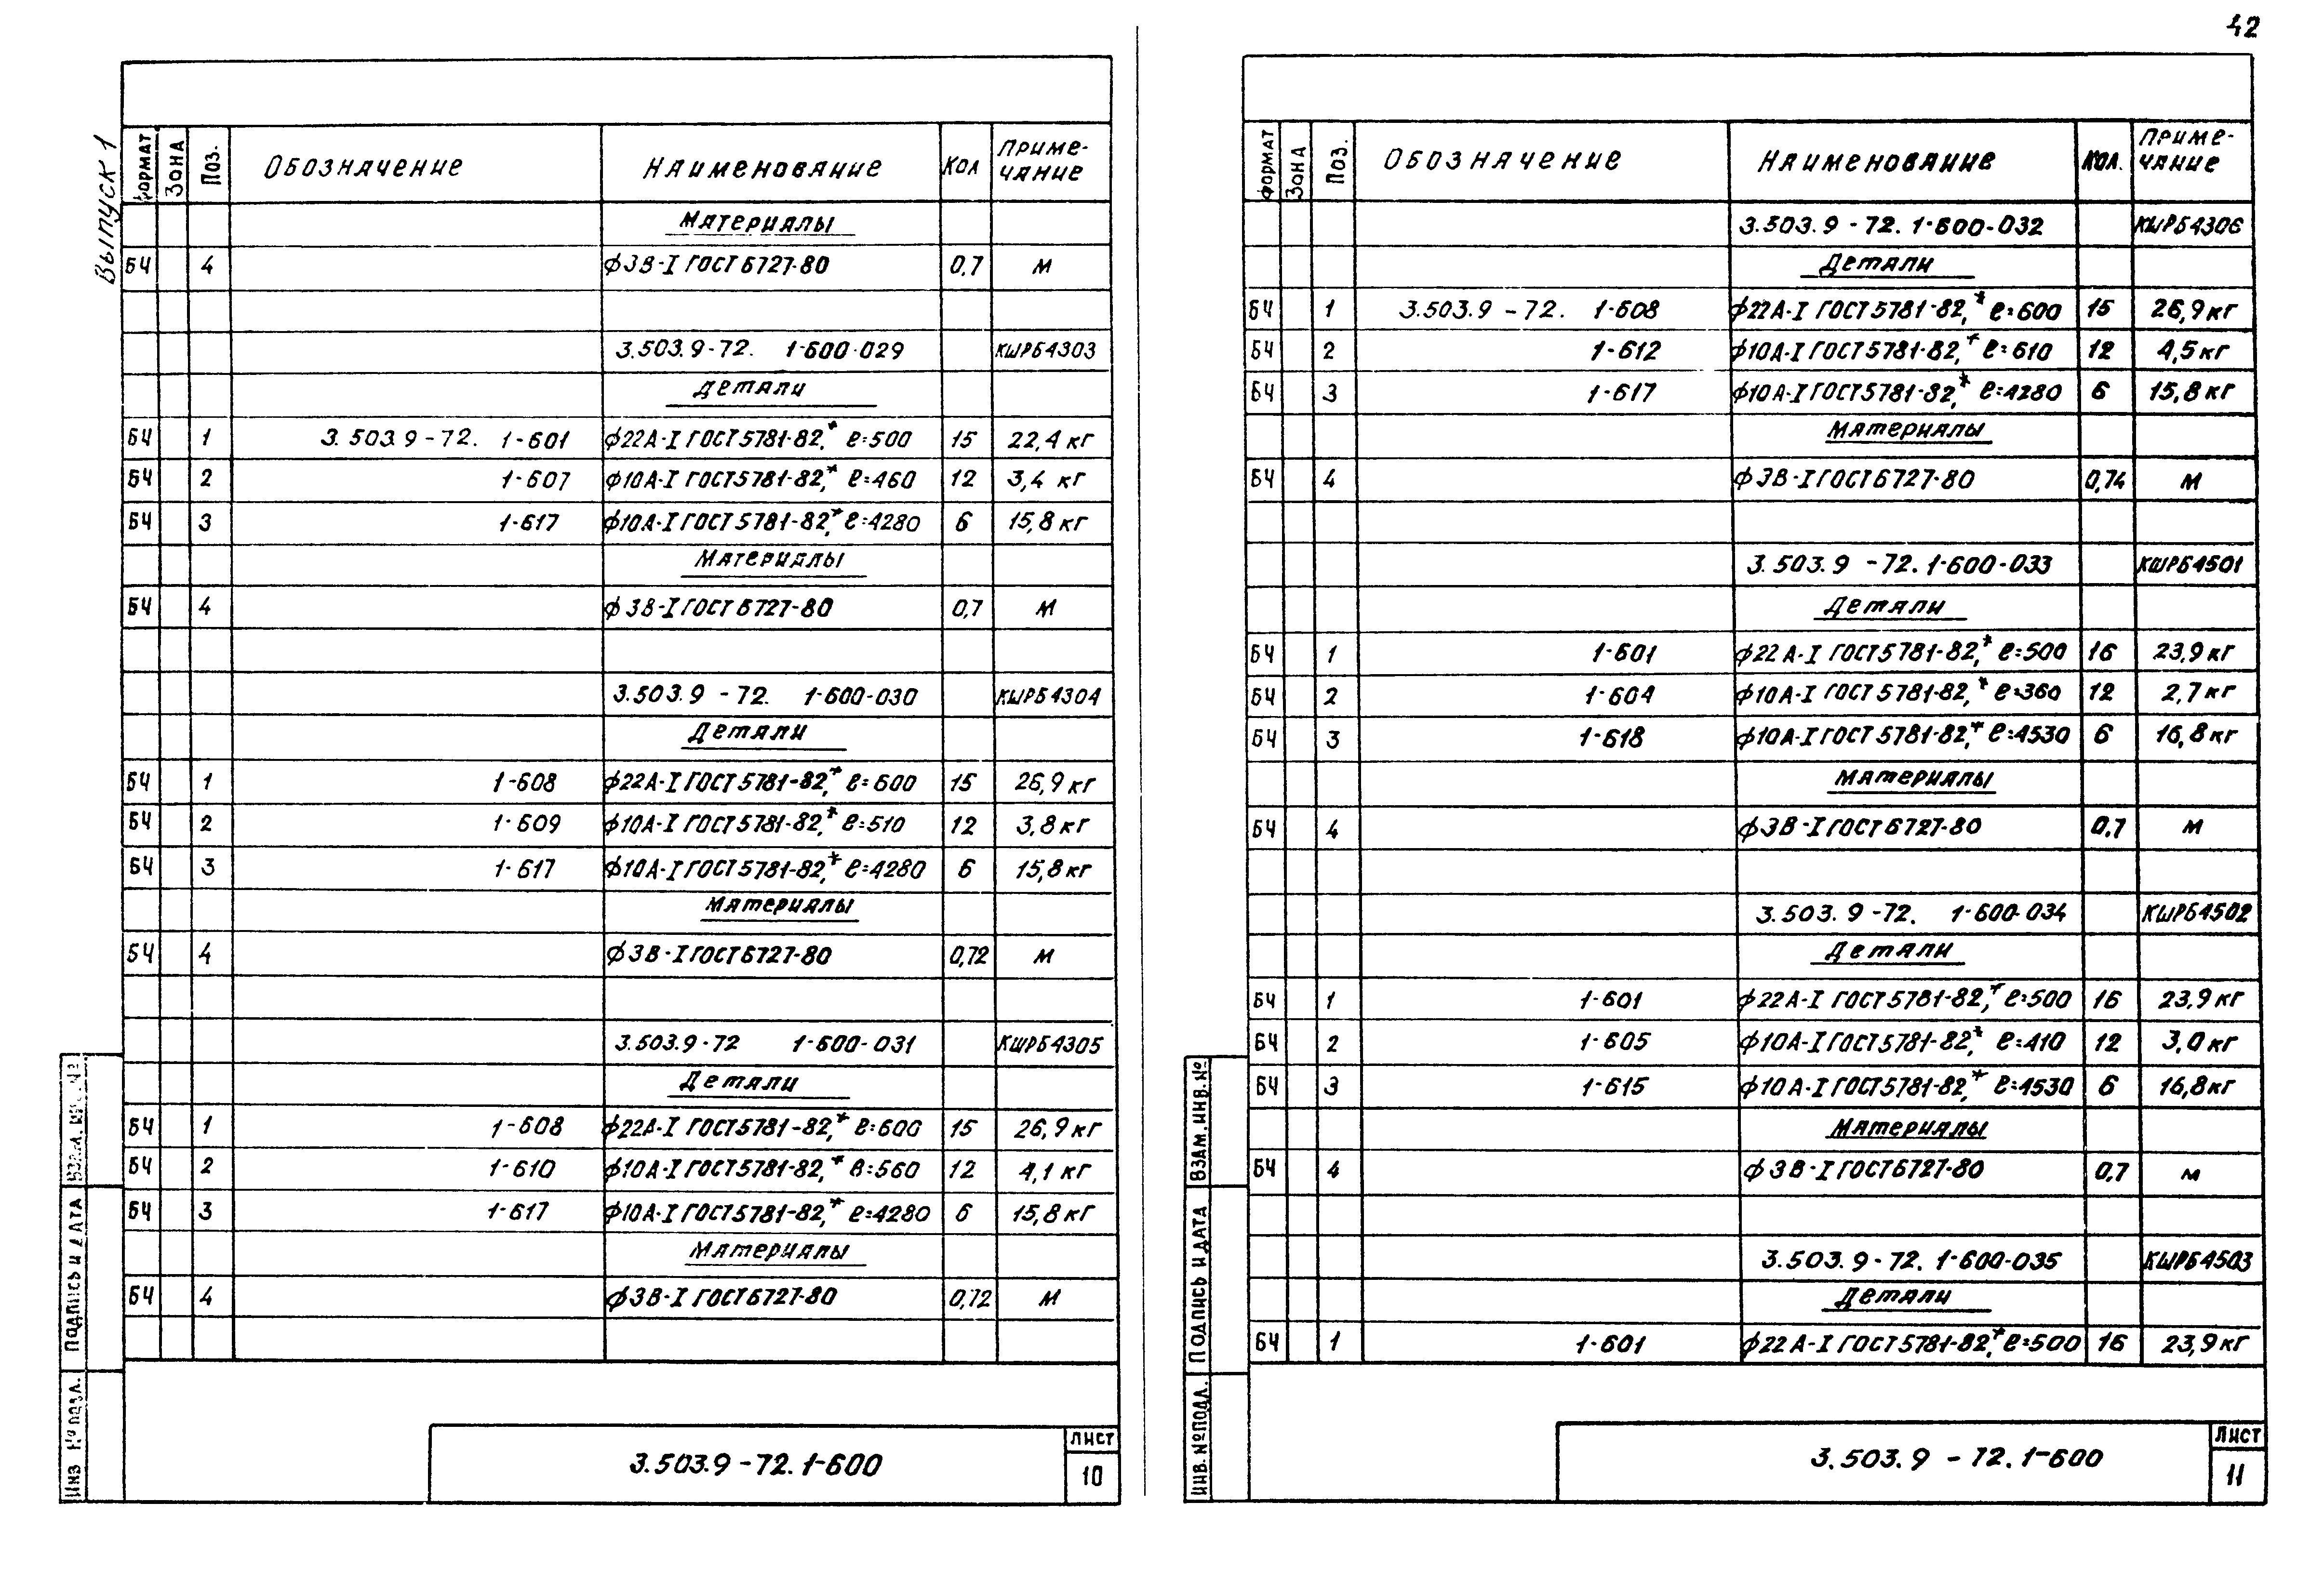 42
Выпуск 1
Формат Зона Поз. Обозначение Наименование Кол Примечание
Материалы
БЧ 4 ф3В-I ГОСТ 6727-80 0,7 м
3.503.9-72. 1-600-029 КШРБ4303
Детали
БЧ 1 3.503.9-72. 1-601 ф22А-I ГОСТ 5781-82,* ℓ=500 15 22,4 кг
БЧ 2 1-607 ф10А-I ГОСТ 5781-82,* ℓ=460 12 3,4 кг
БЧ 3 1-617 ф10А-I ГОСТ 5781-82,* ℓ=4280 6 15,8 кг
Материалы
БЧ 4 ф3В-I ГОСТ 6727-80 0,7 м
3.503.9-72. 1-600-030 КШРБ4304
Детали
БЧ 1 1-608 ф22А-I ГОСТ 5781-82,* ℓ=600 15 26,9 кг
БЧ 2 1-609 ф10А-I ГОСТ 5781-82,* ℓ=510 12 3,8 кг
БЧ 3 1-617 ф10А-I ГОСТ 5781-82,* ℓ=4280 6 15,8 кг
Материалы
БЧ 4 ф3В-I ГОСТ 6727-80 0,72 м
3.503.9-72 1-600-031 КШРБ4305
Детали
БЧ 1 1-608 ф22А-I ГОСТ 5781-82,* ℓ=600 15 26,9 кг
БЧ 2 1-610 ф10А-I ГОСТ 5781-82,* ℓ=560 12 4,1 кг
БЧ 3 1-617 ф10А-I ГОСТ 5781-82,* ℓ=4280 6 15,8 кг
Материалы
БЧ 4 ф3В-I ГОСТ 6727-80 0,72 м
Инв № подл. Подпись и дата Взам. инв. №
3.503.9-72.1-600
Лист
10
Формат Зона Поз. Обозначение Наименование Кол. Примечание
3.503.9-72.1-600-032 КШРБ4306
Детали
БЧ 1 3.503.9-72. 1-608 ф22А-I ГОСТ 5781-82,* ℓ=600 15 26,9 кг
БЧ 2 1-612 ф10А-I ГОСТ 5781-82,* ℓ=610 12 4,5 кг
БЧ 3 1-617 ф10А-I ГОСТ 5781-82,* ℓ=4280 6 15,8 кг
Материалы
БЧ 4 ф3В-I ГОСТ 6727-80 0,74 м
3.503.9-72.1-600-033 КШРБ4501
Детали
БЧ 1 1-601 ф22А-I ГОСТ 5781-82,* ℓ=500 16 23,9 кг
БЧ 2 1-604 ф10А-I ГОСТ 5781-82,* ℓ=360 12 2,7 кг
БЧ 3 1-618 ф10А-I ГОСТ 5781-82,* ℓ=4530 6 16,8 кг
Материалы
БЧ 4 ф3В-I ГОСТ 6727-80 0,7 м
3.503.9-72. 1-600-034 КШРБ4502
Детали
БЧ 1 1-601 ф22А-I ГОСТ 5781-82,* ℓ=500 16 23,9 кг
БЧ 2 1-605 ф10А-I ГОСТ 5781-82,* ℓ=410 12 3,0 кг
БЧ 3 1-615 ф10А-I ГОСТ 5781-82,* ℓ=4530 6 16,8 кг
Материалы
БЧ 4 ф3В-I ГОСТ 6727-80 0,7 м
3.503.9-72.1-600-035 КШРБ4503
Детали
БЧ 1 1-601 ф22А-I ГОСТ 5781-82,* ℓ=500 16 23,9 кг
Инв. № подл. Подпись и дата Взам. инв. №
3.503.9-72.1-600
Лист
11